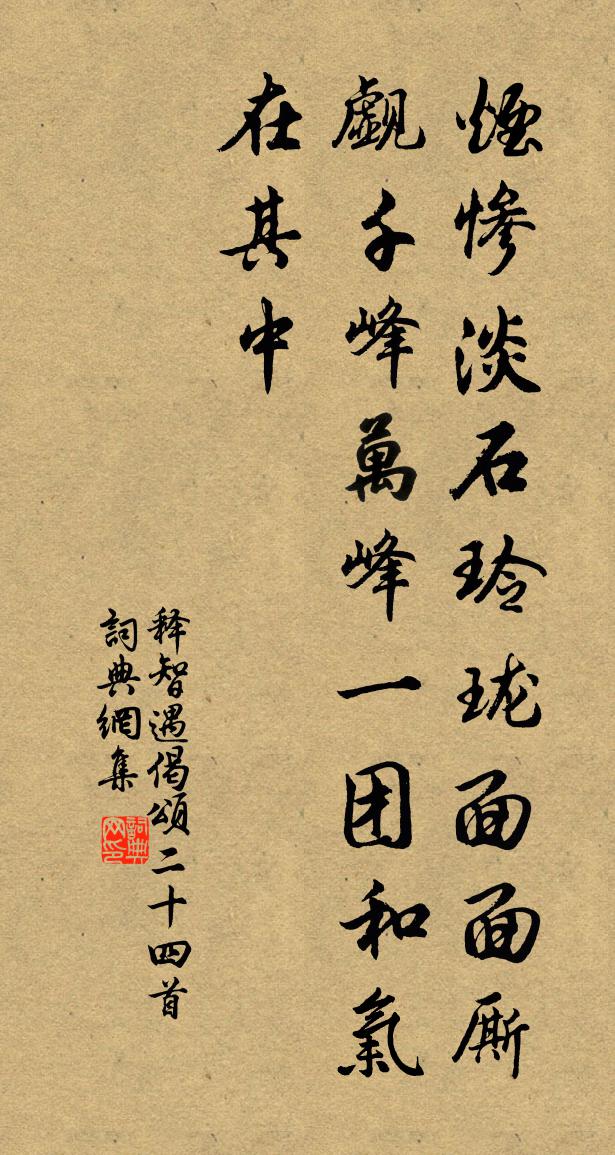 煙慘淡石玲珑面面厮
覷千峰萬峰一团和氣
在其中
释智遇偈頌二十四首
詞典網集
詞典网印